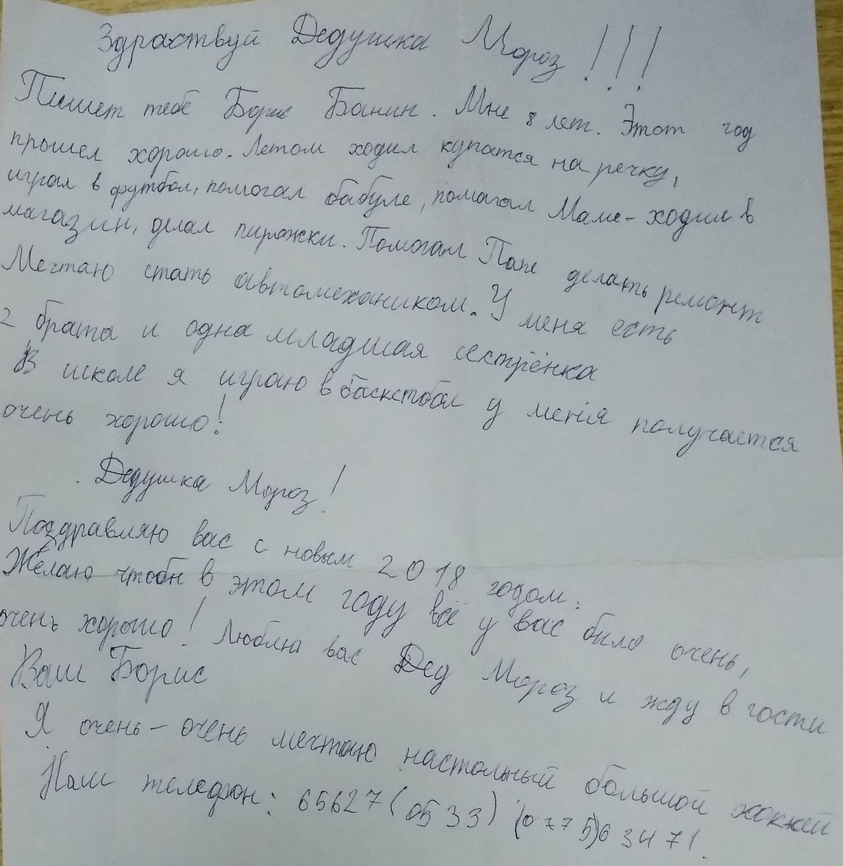 Здраствуй Дедушка Мороз!!!
Пишет тебе Борис Банин. Мне 8 лет. Этот год
прошел хорошо. Летом ходил купатся на речку,
играл в футбол, помогал бабуле, помагал Маме - ходил в
магазин, делал пирожки. Помогал Папе делать ремонт
Мечтаю стать автомехаником. У меня есть
2 брата и одна младшая сестрёнка
В школе я играю в баскетбол у меня получается
очень хорошо!
Дедушка Мороз!
Поздравляю вас с новым 2018 годом.
Желаю чтобы в этом году всё у вас было очень,
очень хорошо! Люблю вас Дед Мороз и жду в гости
Ваш Борис
Я очень - очень мечтаю настольный большой хоккей
Наш телефон: 65627 (0533) (0775)63471.